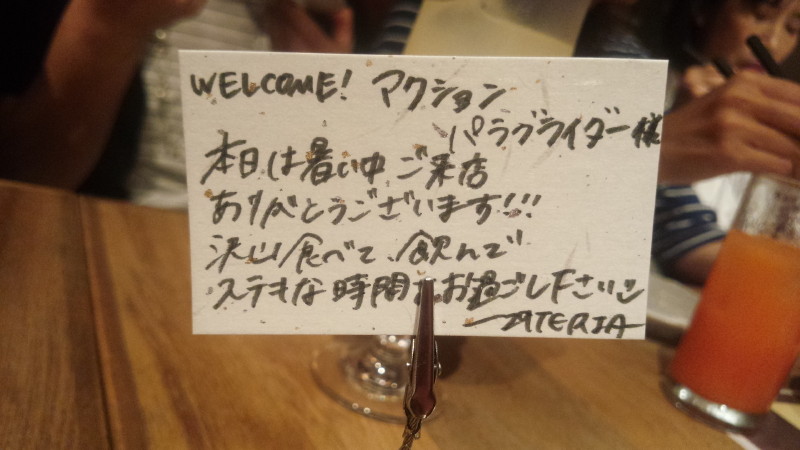 WELCOME! アクション
パラグライダー様
本日は暑い中ご来店
ありがとうございます!!!
沢山食べて、飲んで
ステキな時間をお過ごし下さい